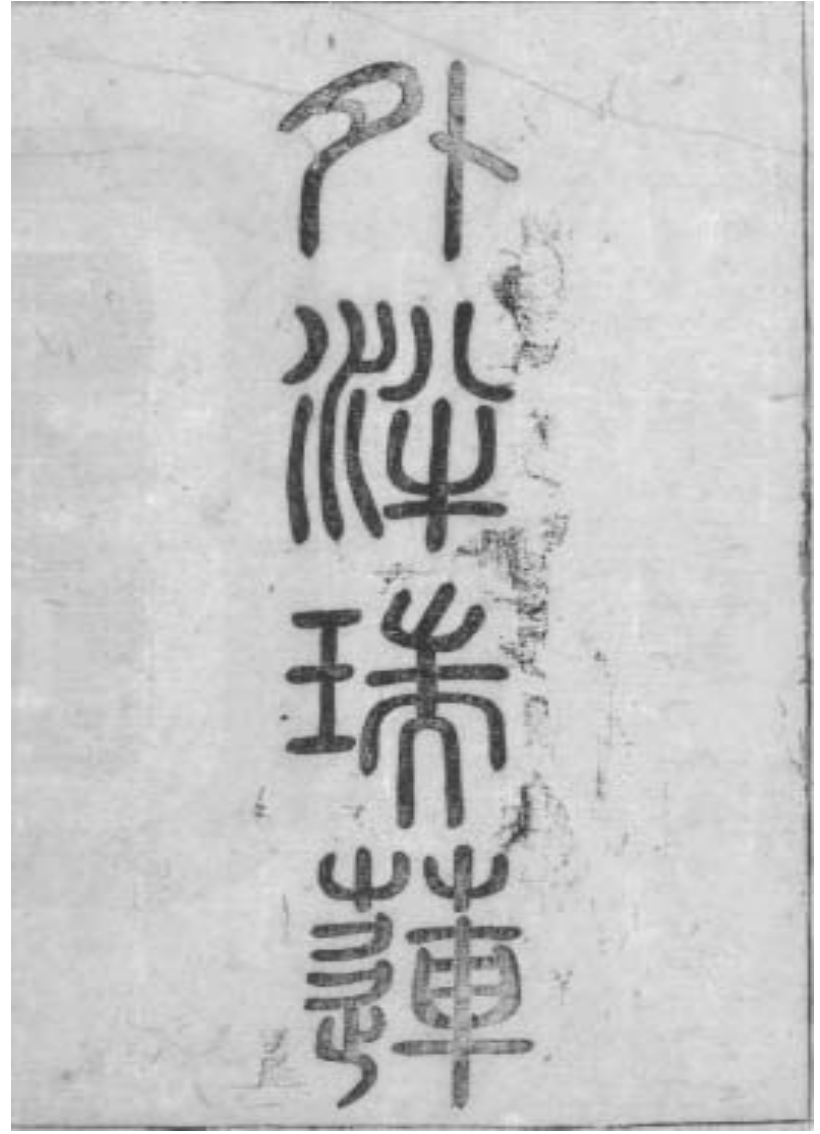 外泮珠蓮